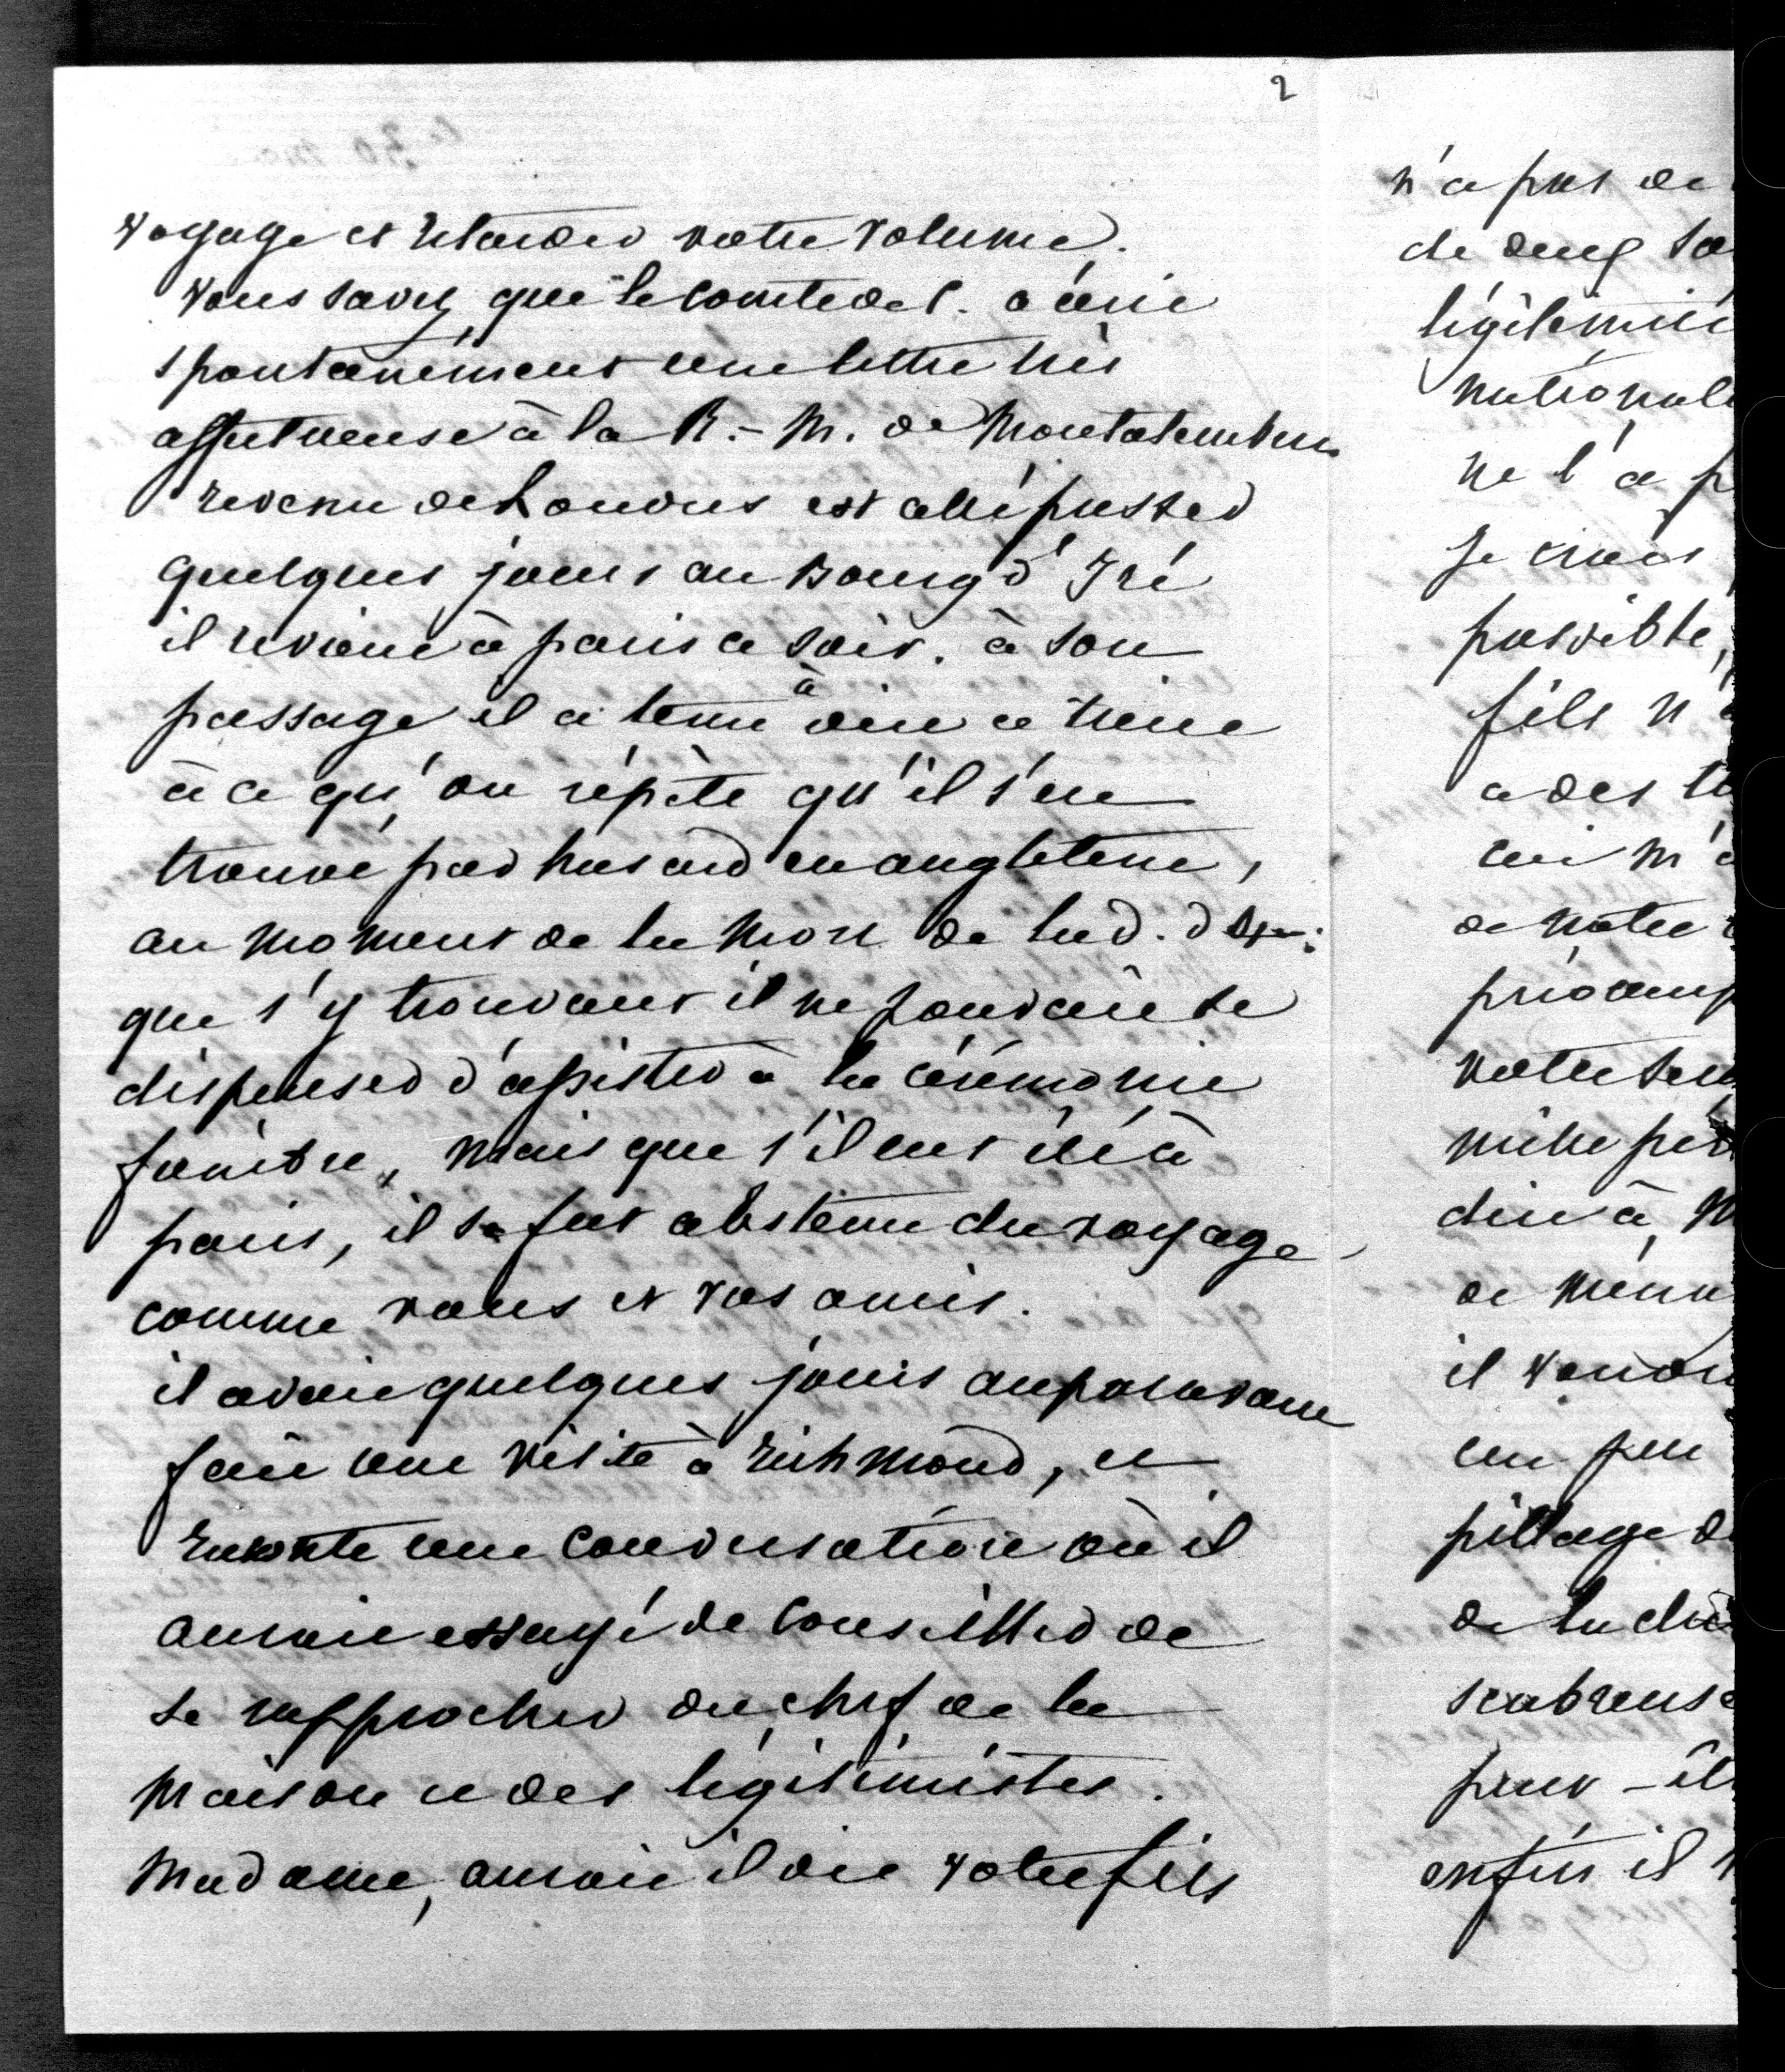 2
voyage et retarder votre volume.
vous savez que le comte de C. a écrit
spontanément une lettre très
affectueuse à la R.-M. de Montalembert
revenu de Londres est allé passer
quelques jours au Bourg d'Iré
il revient à paris ce soir. à son
passage il a tenu à dire à
à ce qu'on répète qu'il s'est
trouvé par hasard en angleterre,
au moment de la mort de la d. d
que s'y trouvant il ne pouvait se
dispenser d'assister à la cérémonie
funèbre, mais que s'il eut été à
paris, il se fut abstenu du voyage
comme vous et vos amis.
il avait quelques jours auparavant
fait une visite à richmond, et
raconte une conversation où il
aurait essayé de conseiller de
se rapprocher du chef de la
maison et des légitimistes.
Madame, aurait il dit votre fils
n'a pas de
de deux
légitimité
nationale
ne l'a p
Je crois
possible,
fils n'
a des
lui m'a
de notre
votre
mille
dire à M
de
il
un peu
pillage d
de la
scabreuse
peut-êt
enfin il